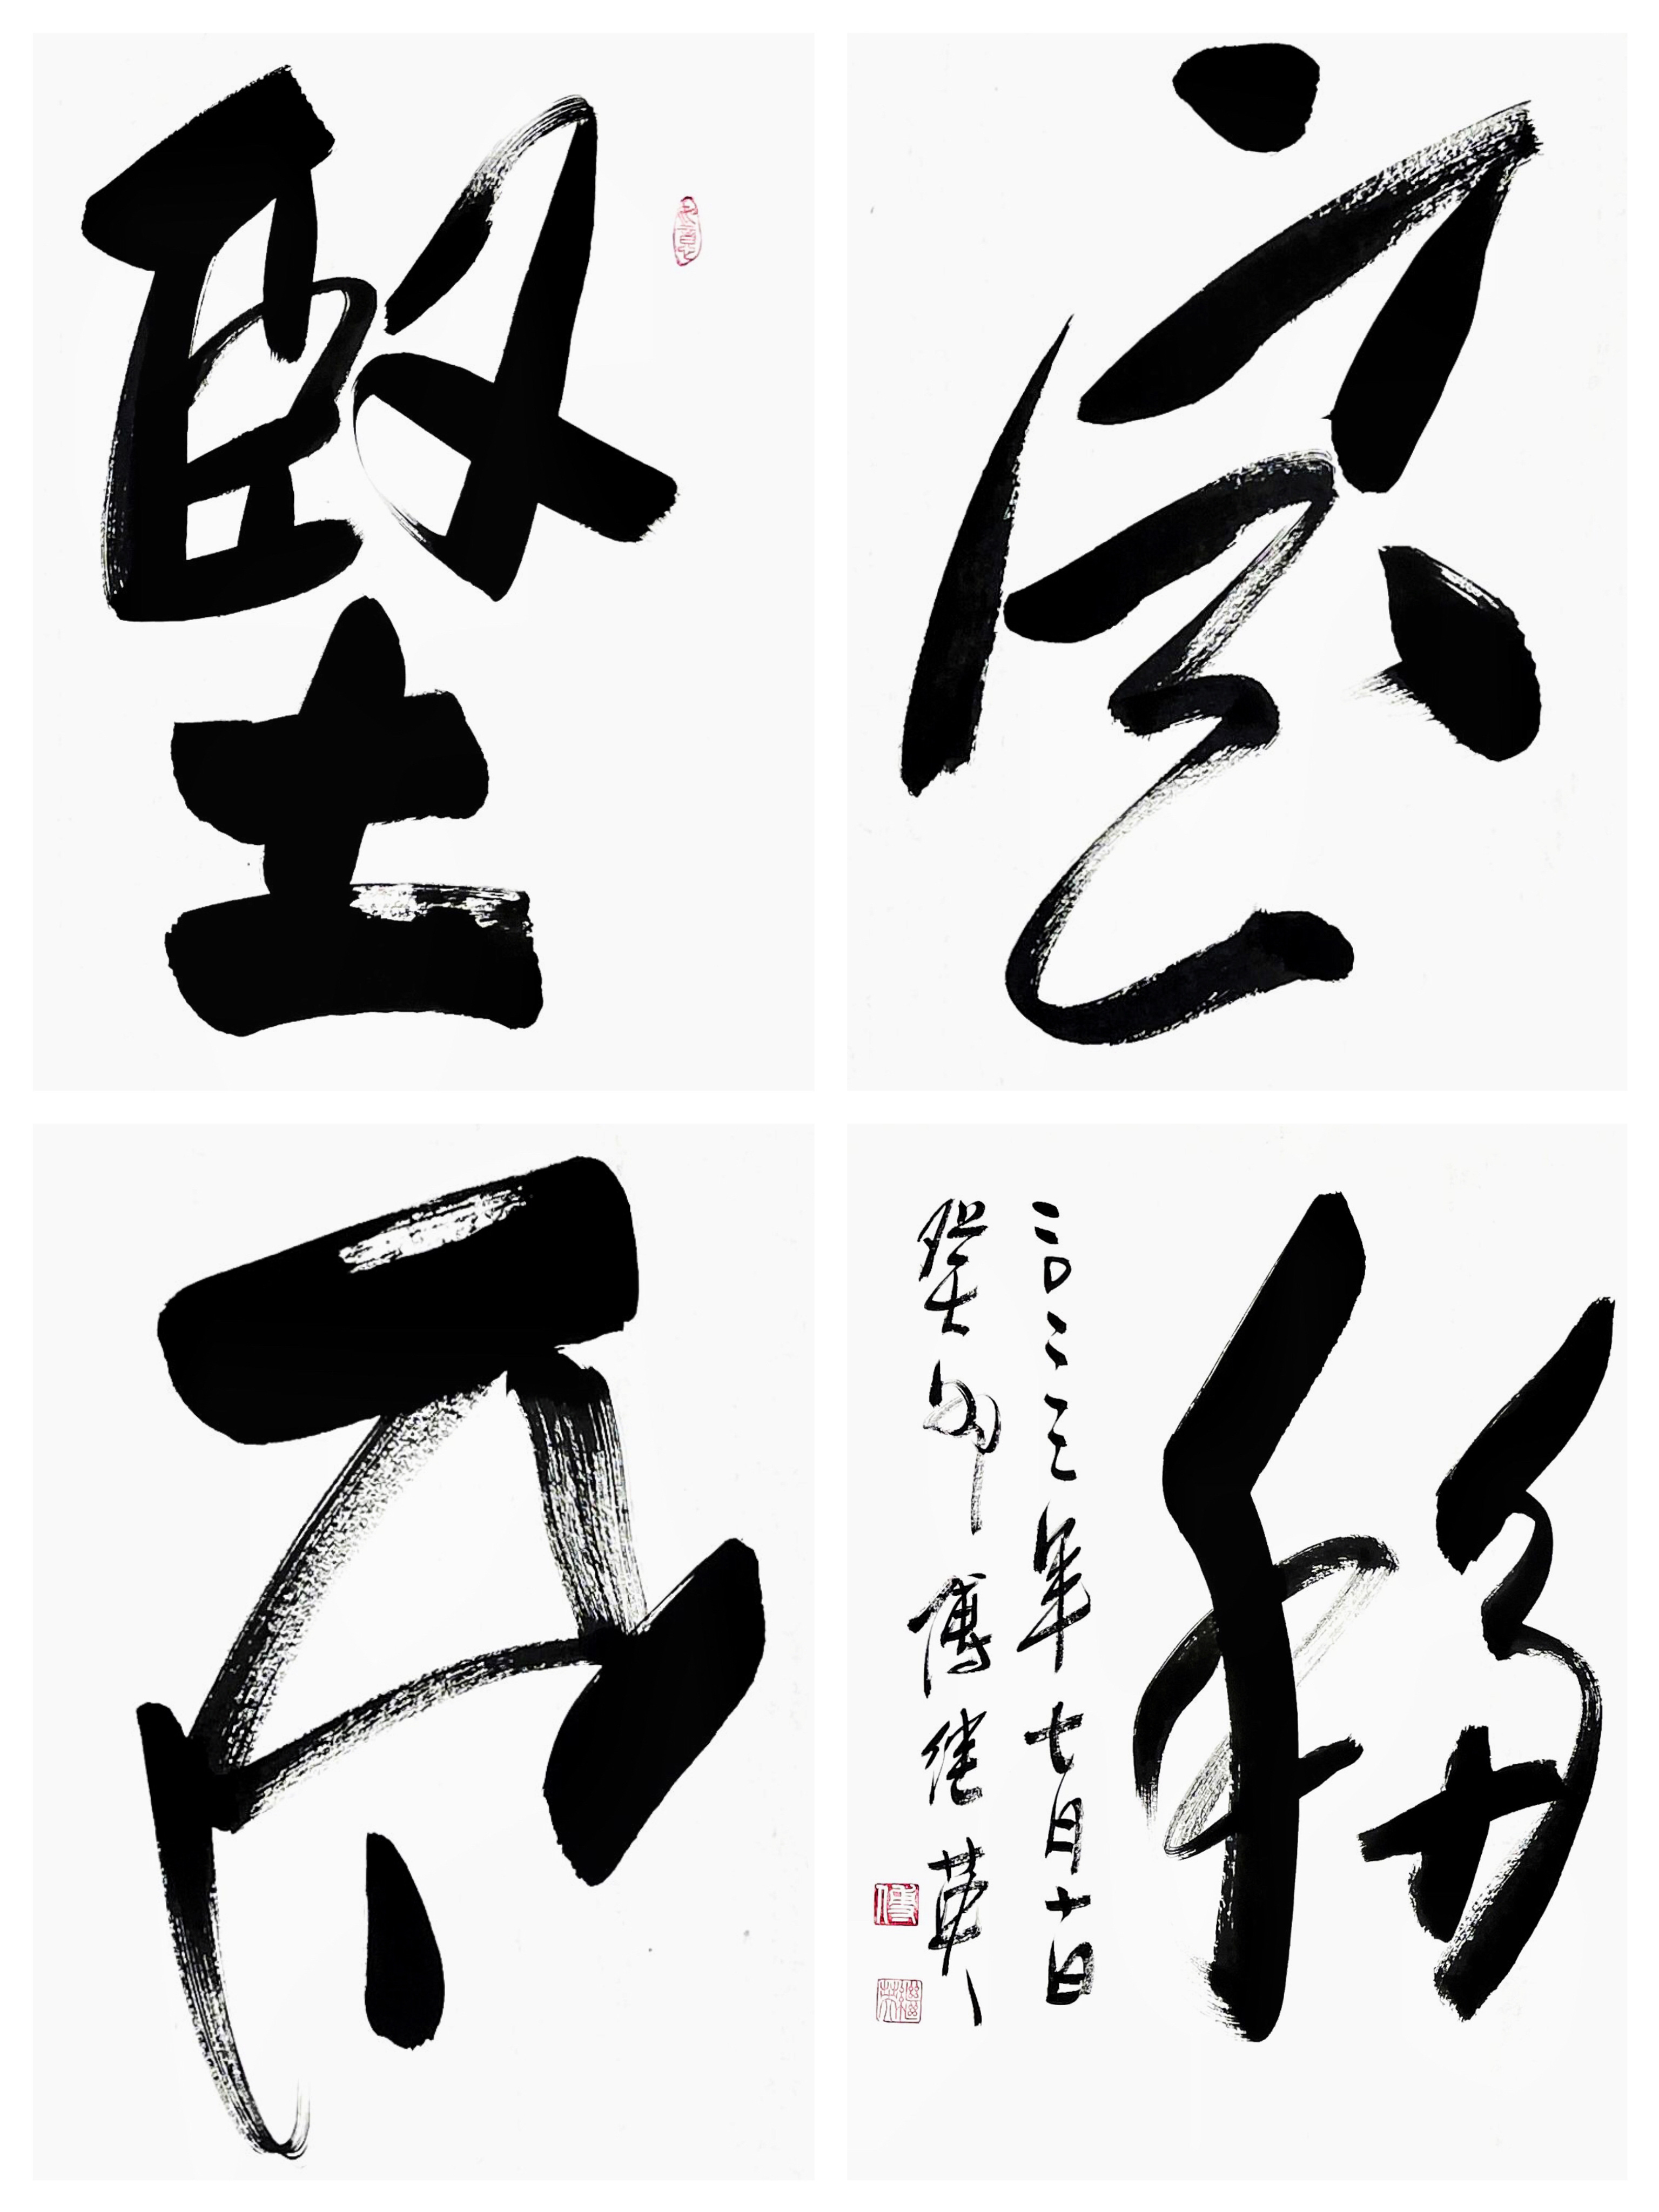 堅
定
不
移
二〇二三年七月十日
癸卯 傅继
傅